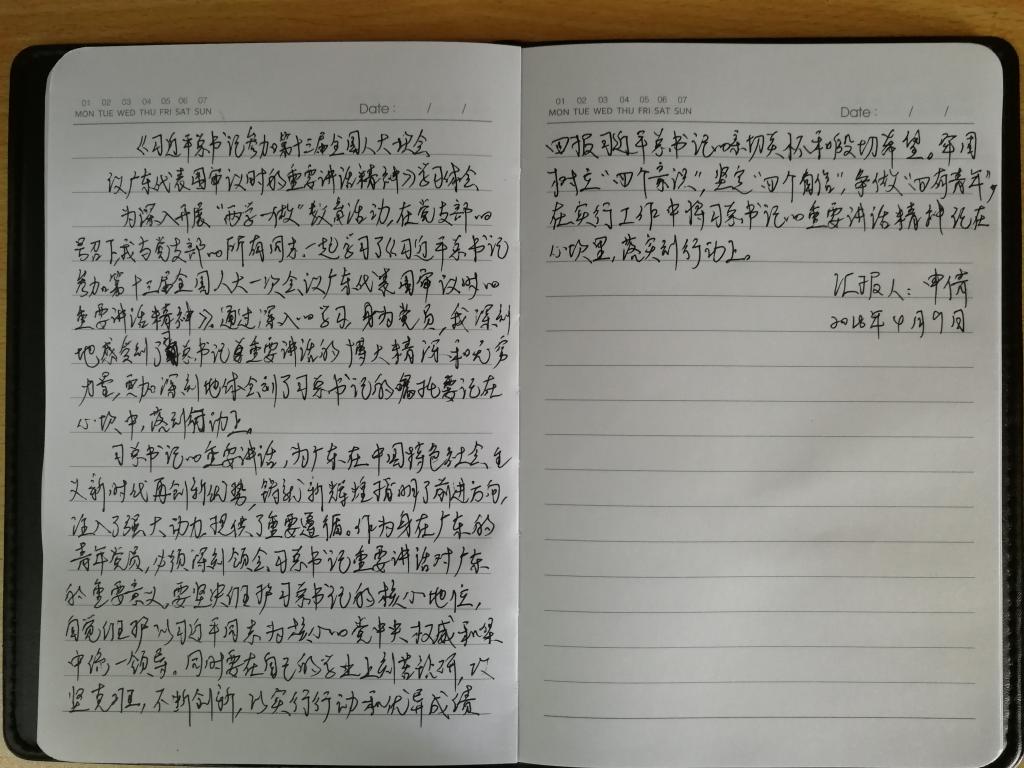 01 02 03 04 05 06 07
MON TUE WED THU FRI SAT SUN
Date: / /
《习近平总书记参加第十三届全国人大一次会
议广东代表团审议时的重要讲话精神》学习体会
为深入开展“两学一做”教育活动,在党支部的
号召下,我与党支部的所有同志一起学习了《习近平总书记
参加第十三届全国人大一次会议广东代表团审议时的
重要讲话精神》。通过深入的学习,身为党员,我深刻
地感受到了总书记重要讲话的博大精深和无穷
力量,更加深刻地体会到了习总书记的嘱托要记在
心坎中,落到行动上。
习总书记的重要讲话,为广东在中国特色社会主
义新时代再创新优势,铸就新辉煌指明了前进方向,
注入了强大动力,提供了重要遵循。作为身在广东的
青年党员,必须深刻领会习总书记重要讲话对广东
的重要意义,要坚决维护习总书记的核心地位,
自觉维护以习近平同志为核心的党中央权威和集
中统一领导。同时要在自己的学业上刻苦钻研,攻
坚克难,不断创新,以实行行动和优异成绩
01 02 03 04 05 06 07
MON TUE WED THU FRI SAT SUN
Date: / /
回报习近平总书记的亲切关怀和殷切希望。牢固
树立“四个意识”,坚定“四个自信”,争做“四有青年”,
在实行工作中将习总书记的重要讲话精神记在
心坎里,落实到行动上。
汇报人:申倩
2018年4月9日